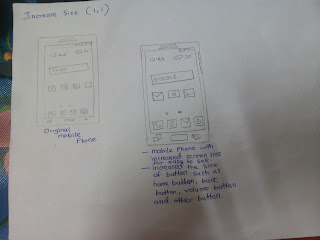 Increase Size (1,1)
12:45
12:45
GOOGLE
Original
Mobile
Phone
- mobile Phone with
increased screen size
for easy to see
- increased the size
of button such as
home button, back
button, volume button
and other button.